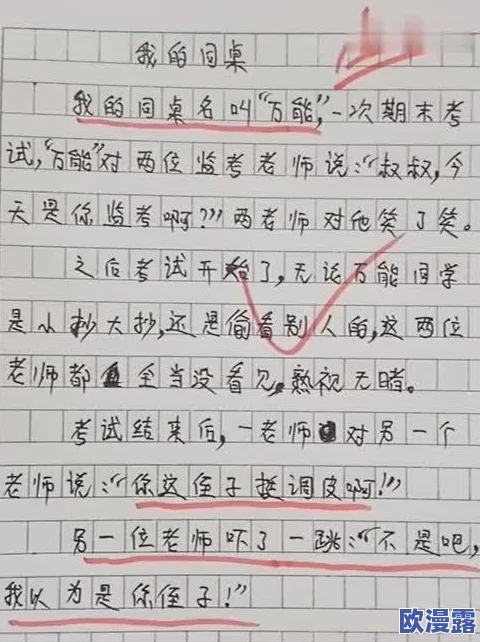 我的同桌
我的同桌名叫“万能”,一次期末考
试,“万能”对两位监考老师说:“叔叔,今
天是你监考啊?”两老师对他笑了笑。
之后考试开始了,无论万能同学
是小抄大抄,还是偷看别人的,这两位
老师都全当没看见,熟视无睹。
考试结束后,一老师对另一个
老师说:“你这侄子挺调皮啊!”
另一位老师吓了一跳:“不是吧,
我以为是你侄子!”
欧漫露